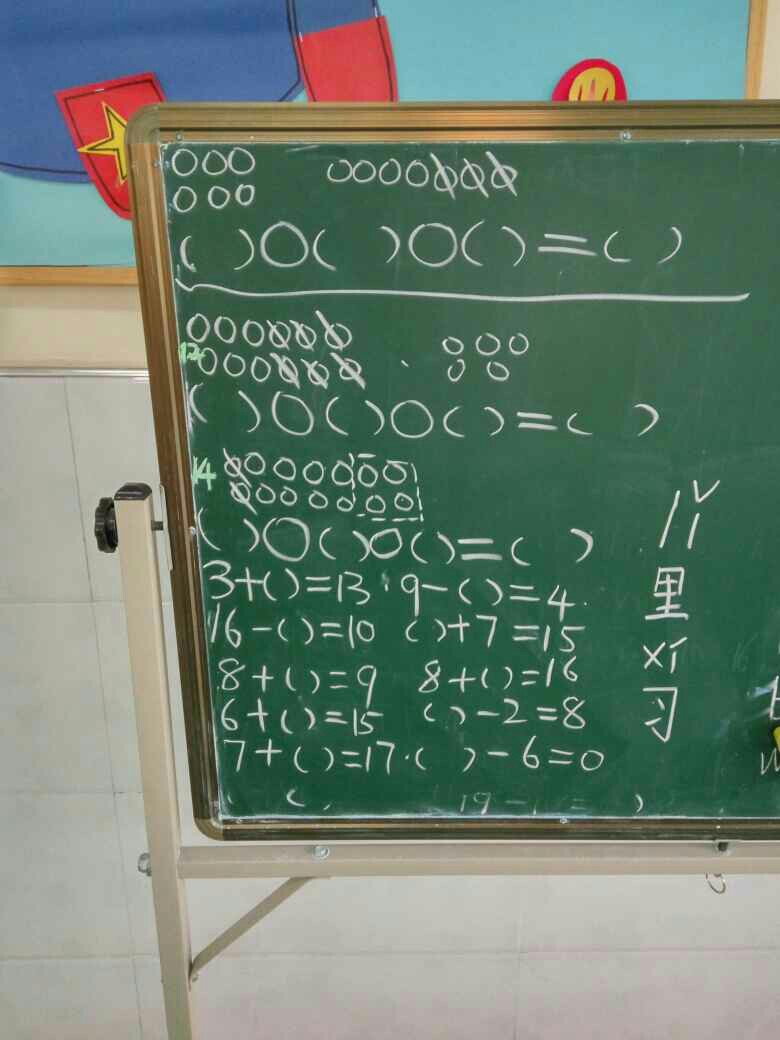 ( )○( )○( )=( )
12
( )○( )○( )=( )
14
( )○( )○( )=( )
3+( )=13 9-( )=4
16-( )=10 ( )+7=15
8+( )=9 8+( )=16
6+( )=15 ( )-2=8
7+( )=17 ( )-6=0
里
习